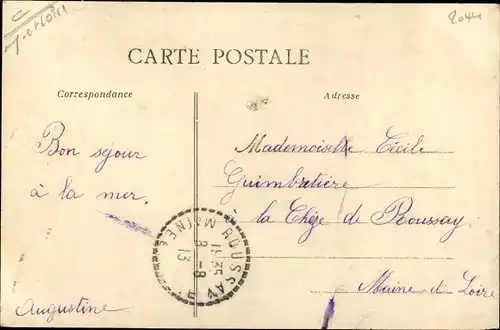 2044
CARTE POSTALE
Correspondance
Adresse
Bon sejour
à la mer.
Augustine
Mademoiselle Cécile
Guimbretière
la Chèze de Roussay
Maine et Loire
ROUSSAY
15 35
8 -8
13